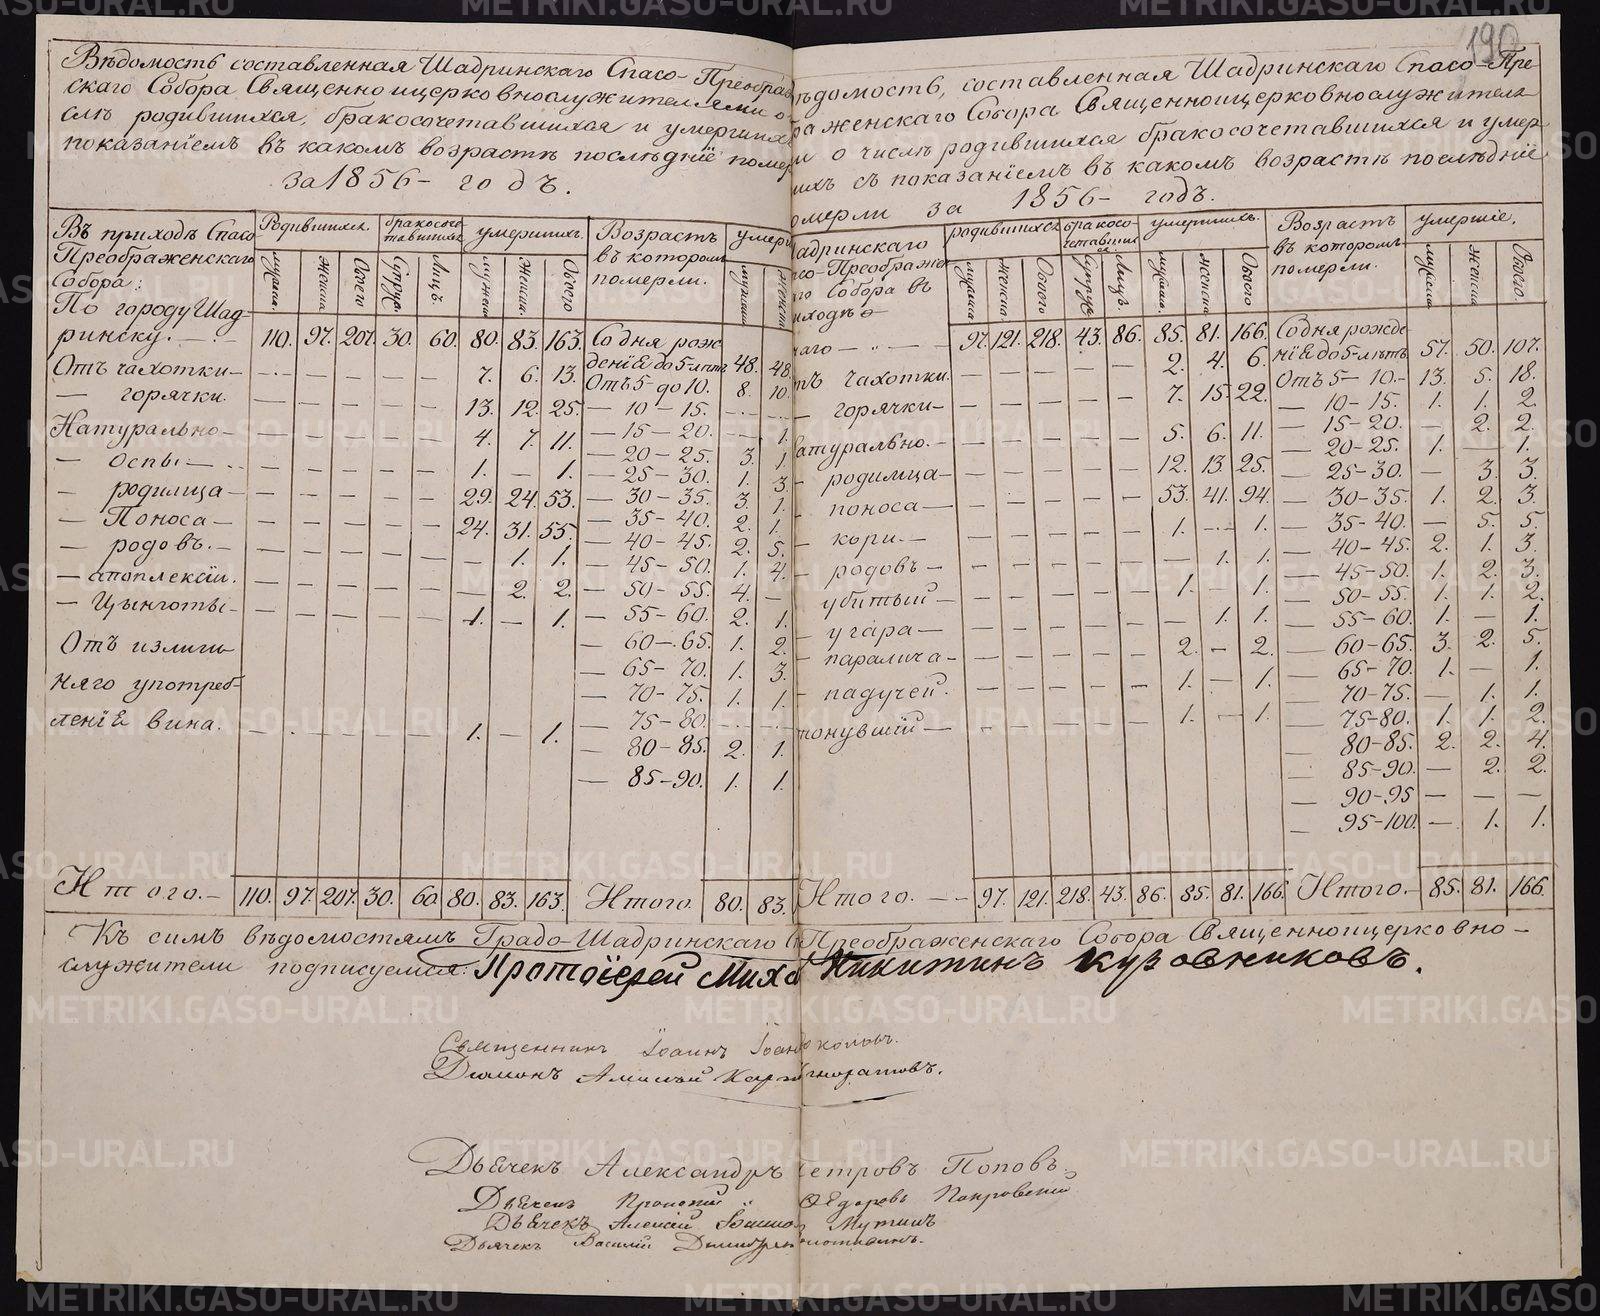 190
Вѣдомость составленная Шадринскаго Спасо-Преображ
скаго Собора Священноицерковнослужителями о
слѣ родившихся, бракосочетавшихся и умерших
показаніемъ въ какомъ возрастѣ послѣдніе помер
за 1856- годъ.
Въ приходѣ Спасо
Преображенскаго
Собора:
По городу Шад-
ринску. — 110. 97. 207. 30. 60. 80. 83. 163.
Родившихся. бракосоче-тавшихся умершихъ. Возрастъ въ которомъ померли. умерш
мужеска. женска Обоего Супруж. Лицъ. мужеск. женска. Обоего мужеска женска
Отъ чахотки — 7. 6. 13.
— горячки. 13. 12. 25.
Натурально — 4. 7. 11.
— оспы — 1. — 1.
— родимца — 29. 24. 53.
— Поноса — 24. 31. 55.
— родовъ. — 1. 1.
— апоплексіи. — 2. 2.
— Цынготы — 1. — 1.
Отъ излиш-
няго употреб-
ленія вина. 1. — 1.
Со дня рож-
денія до 5-лѣтъ 48. 48
Отъ 5 до 10. 8. 10.
— 10 — 15. — —
— 15 — 20. — 1.
— 20 — 25. 3. 1.
— 25 — 30. 1. 3.
— 30 — 35. 3. 1.
— 35 — 40. 2. 1.
— 40 — 45. 2. 5.
— 45 — 50. 1. 4.
— 50 — 55. 4. —
— 55 — 60. 2. 1.
— 60 — 65. 1. 2.
— 65 — 70. 1. 3.
— 70 — 75. 1. 1.
— 75 — 80. — —
— 80 — 85. 2. 1.
— 85 — 90. 1. 1.
Итого. — 110. 97. 207. 30. 60. 80. 83. 163. Итого. 80. 83.
ѣдомость, составленная Шадринскаго Спасо-Пре-
раженскаго Собора Священноицерковнослужителя
и о числѣ родившихся бракосочетавшихся и умер
ихъ съ показаніемъ въ какомъ возрастѣ послѣдніе
омерли за 1856- годъ.
адринскаго
со-Преображен
го Собора въ
иходѣ
родившихся бракосо-четавшихся умершихъ. Возрастъ въ которомъ померли. умершіе.
мужеска женска Обоего Супруж Лицъ. мужеска. женска Обоего мужеска женска. Обоего.
наго — 97. 121. 218. 43. 86. 85. 81. 166.
тъ чахотки. 2. 4. 6.
— горячки — 7. 15. 22.
атурально. — 5. 6. 11.
— родимца — 12. 13. 25.
— поноса — 53. 41. 94.
— кори. — 1. — 1.
— родовъ — 1. 1.
— убитый — 1. — 1.
— угара — 1. 1.
— паралича — 2. — 2.
— падучей. 1. — 1.
тонувшій — 1. — 1.
Со дня рожде-
нія до 5-лѣтъ 57. 50. 107.
Отъ 5 — 10. — 13. 5. 18.
— 10 — 15. 1. 1. 2.
— 15 — 20. — 2. 2.
— 20 — 25. 1. — 1.
25 — 30. — 3. 3.
— 30 — 35. 1. 2. 3.
— 35 — 40. — 5. 5.
— 40 — 45. 2. 1. 3.
— 45 — 50. 1. 2. 3.
— 50 — 55. 1. 1. 2.
— 55 — 60. 1. — 1.
— 60 — 65. 3. 2. 5.
— 65 — 70. 1. — 1.
— 70 — 75. — 1. 1.
— 75 — 80. 1. 1. 2.
— 80 — 85. 2. 2. 4.
— 85 — 90. — 2. 2.
— 90 — 95 — — —
— 95 — 100. — 1. 1.
Итого. — 97. 121. 218. 43. 86. 85. 81. 166. Итого. — 85. 81. 166.
Къ симъ вѣдомостямъ Градо-Шадринскаго Преображенскаго Собора Священноицерковно-
служители подписуемся: Протоіерей Миха Никитинъ Кузовниковъ.
Священникъ Іоаннъ
Діаконъ
Дьячекъ Александръ Петровъ Поповъ.
Дьячекъ Ѳедоровъ Покровскій
Дьячекъ Алексій Мутинъ
Дьячекъ Василій
METRIKI.GASO-URAL.RU